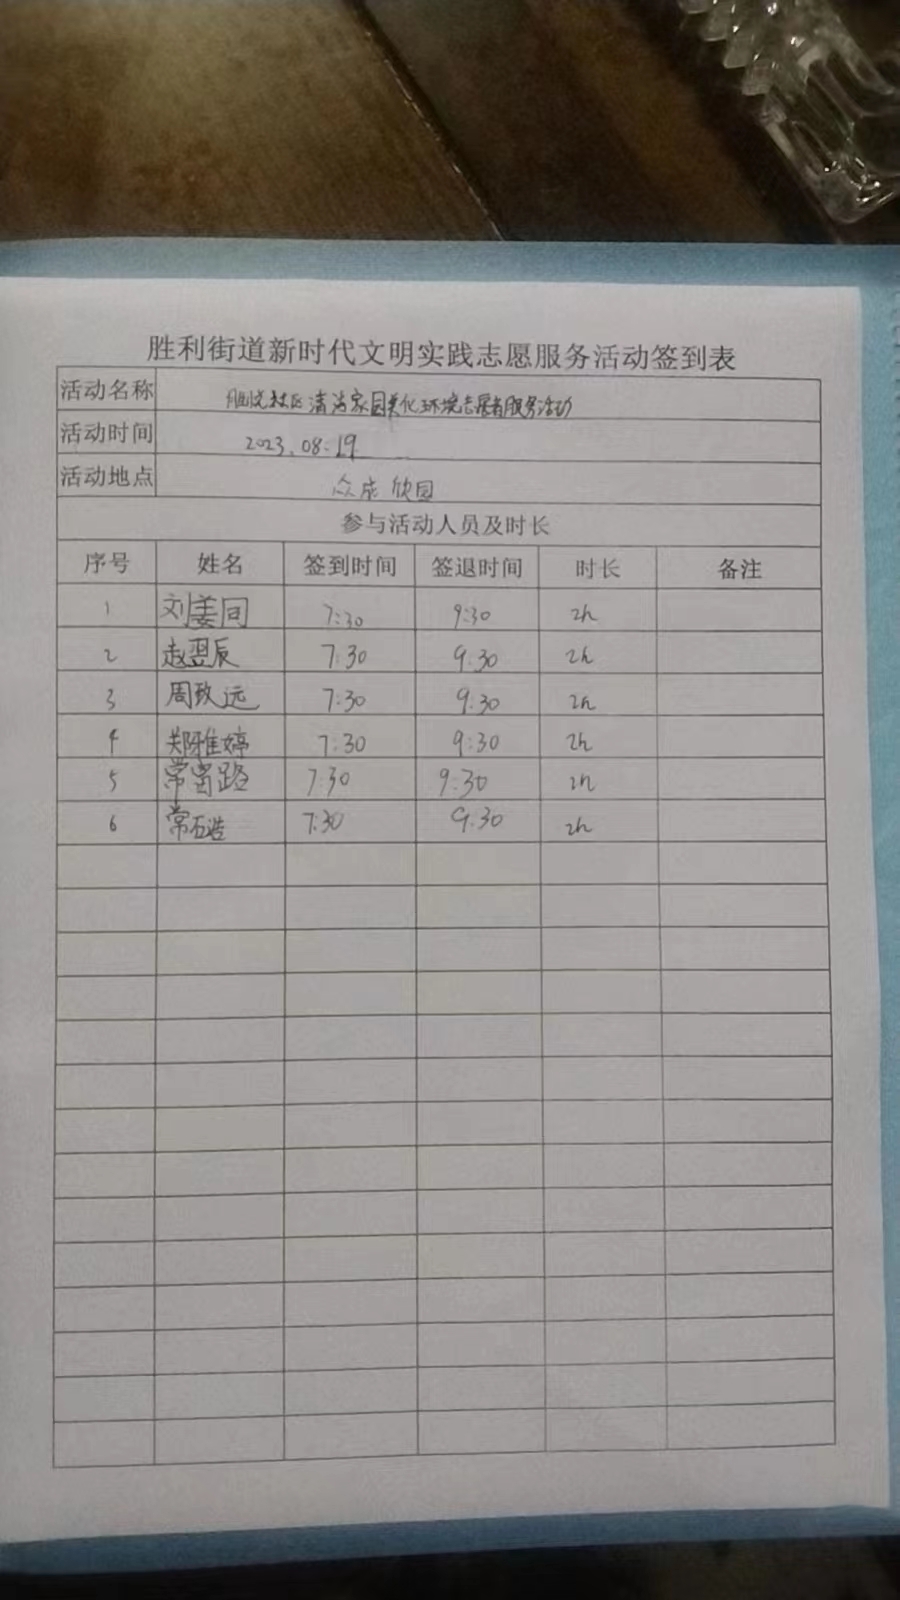 胜利街道新时代文明实践志愿服务活动签到表
活动名称 社区清洁家园美化环境志愿者服务活动
活动时间 2023.08.19
活动地点 众成欣园
参与活动人员及时长
序号 姓名 签到时间 签退时间 时长 备注
1 刘姜同 7:30 9:30 2h
2 赵翌辰 7:30 9:30 2h
3 周致远 7:30 9:30 2h
4 郑雅婷 7:30 9:30 2h
5 常富路 7:30 9:30 2h
6 常石浩 7:30 9:30 2h